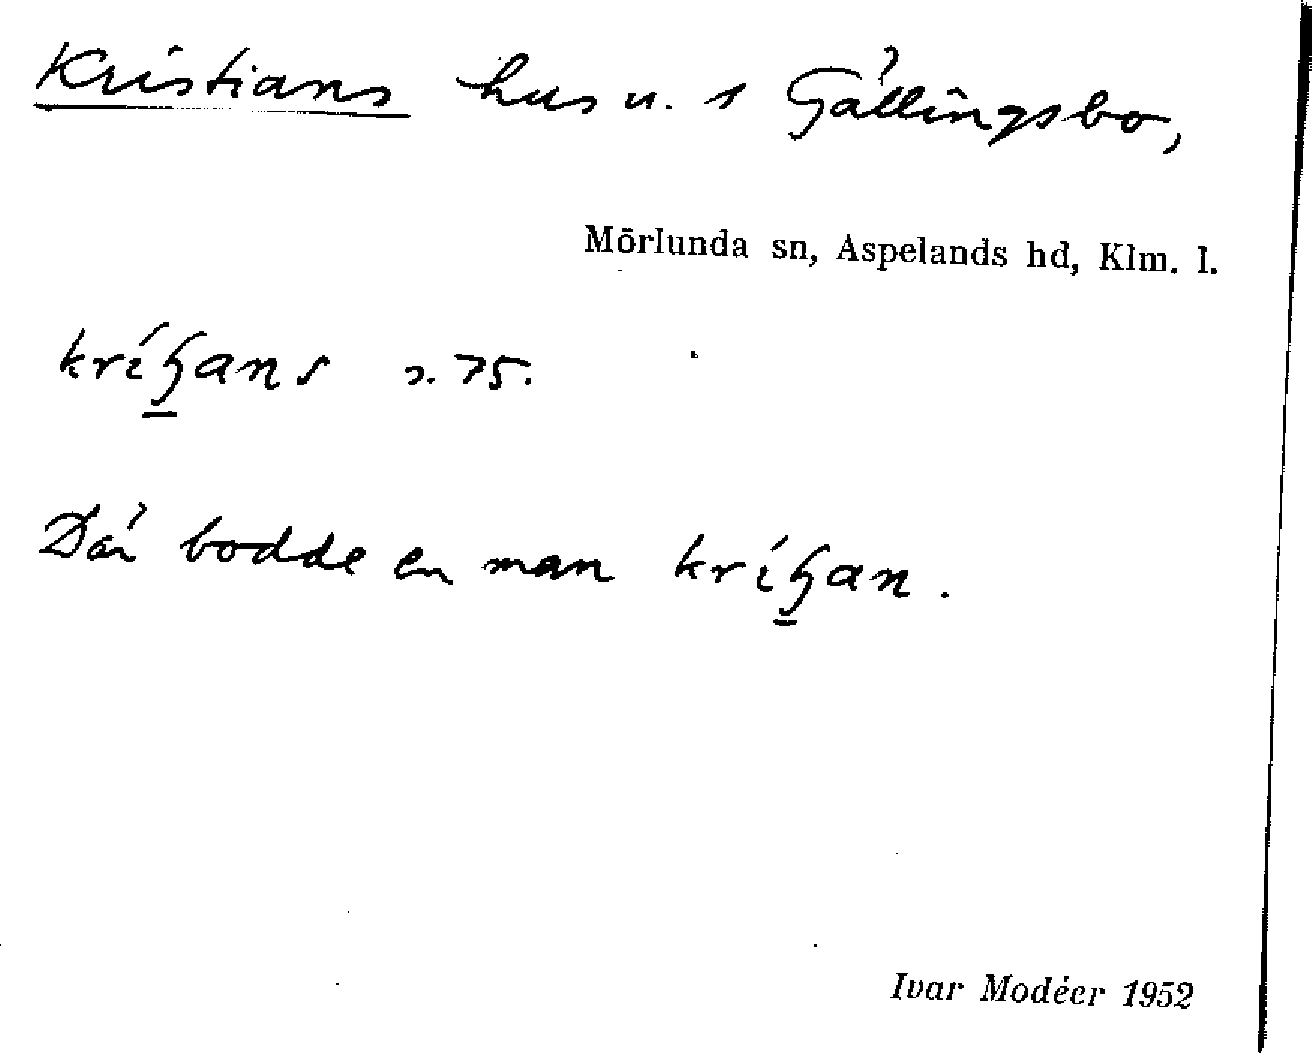 Kristians hus u. s Gällingsbo,
Mörlunda sn, Aspelands hd, Klm. l.
s. 75.
Där bodde en man
Ivar Modéer 1952